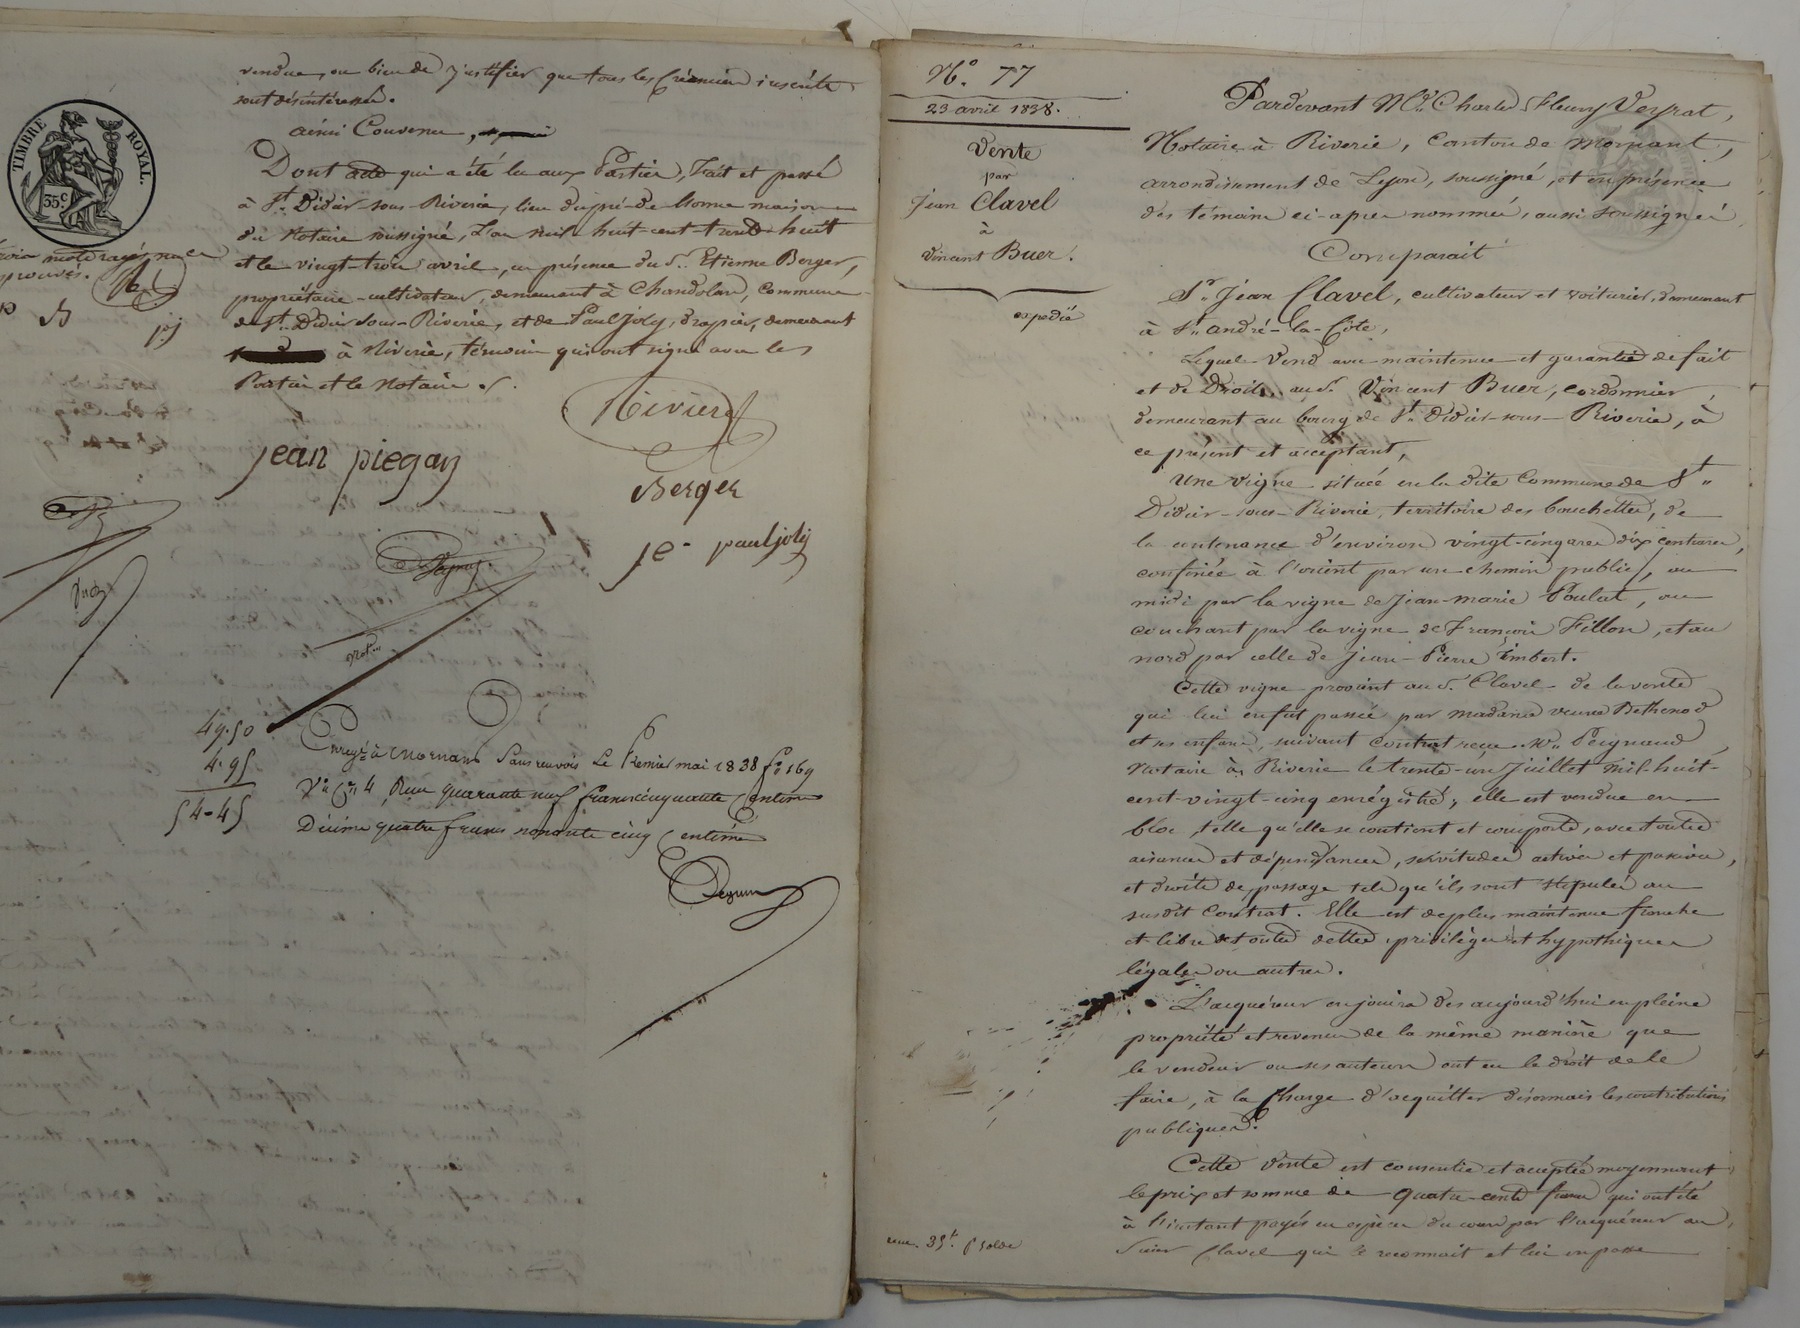 vendue, ou bien de justifier que tous les Créanciers inscrits
sont désintéressés.
ainsi Convenu,
TIMBRE ROYAL.
35 c
Dont acte qui a été lu aux Parties, Fait et passé
à St. Didier-sous-Riverie, lieu du pré-de-lorme maison
du Notaire soussigné, L'an mil-huit-cent-trente-huit
et le vingt-trois avril, en présence du Sr. Etienne Berger,
propriétaire-cultivateur, demeurant à Chandolan, Commune
de St. Didier-sous-Riverie, et de Paul Joly, drapier, demeurant
à Riverie, témoins qui ont signé avec les
Parties et le Notaire.
trois mots rayés nuls
Riviere
jean piegay
Berger
je pauljoly
Not...
49.50
4.95
54-45
Enregé à Mornant Sans renvois Le Premier mai 1838 fo 169
Vo Ce 4, Reçu quarante neuf francs cinquante Centimes
Décime quatre francs nonante cinq Centimes
No. 77
23 avril 1838.
Vente
par
Jean Clavel
à
Vincent Buer.
expedié
Pardevant Me. Charles Fleury Veyrat,
Notaire à Riverie, Canton de Mornant,
arrondissement de Lyon, soussigné, et en présence
des témoins ci-après nommés, aussi soussignés,
Comparait
Sr. Jean Clavel, cultivateur et voiturier, demeurant
à St. André-la-Côte,
Lequel Vend avec maintenue et garantie de fait
et de Droit, au Sr. Vincent Buer, cordonnier,
demeurant au bourg de St. Didier-sous-Riverie, à
ce présent et acceptant,
Une vigne située en la dite Commune de St.
Didier-sous-Riverie, territoire des bouchettes, de
la contenance d'environ vingt-cinq ares dix centiares,
confinée à l'orient par un chemin public, au
midi par la vigne de Jean-marie Poulat, au
couchant par la vigne de François Fillon, et au
nord par celle de Jean-Pierre Imbert.
Cette vigne provient au Sr. Clavel de la vente
qui lui en fut passée par madame veuve Bethenod
et ses enfans, suivant Contrat reçu Me. Peignaud
Notaire à Riverie le trente-un Juillet mil-huit-
cent-vingt-cinq enrégistré, elle est vendue en
bloc, telle qu'elle se contient et comporte, avec toutes
aisances et dépendances, servitudes actives et passives,
et droits de passage tels qu'ils sont stipulés au
susdit Contrat. Elle est de plus maintenue franche
et libre de toutes dettes, privilèges et hypothèques
légales ou autres.
L'acquéreur en jouira dès aujourd'hui en pleine
propriété et revenus de la même manière que
le vendeur ou ses auteurs ont eu le droit de le
faire, à la Charge d'acquitter désormais les contributions
publiques.
Cette Vente est consentie et acceptée moyennant
le prix et somme de quatre-cents francs qui ont été
à l'instant payés en espèces du cours par l'acquéreur au
Sieur Clavel qui le reconnait et lui en passe
reçu. 35f. p solde